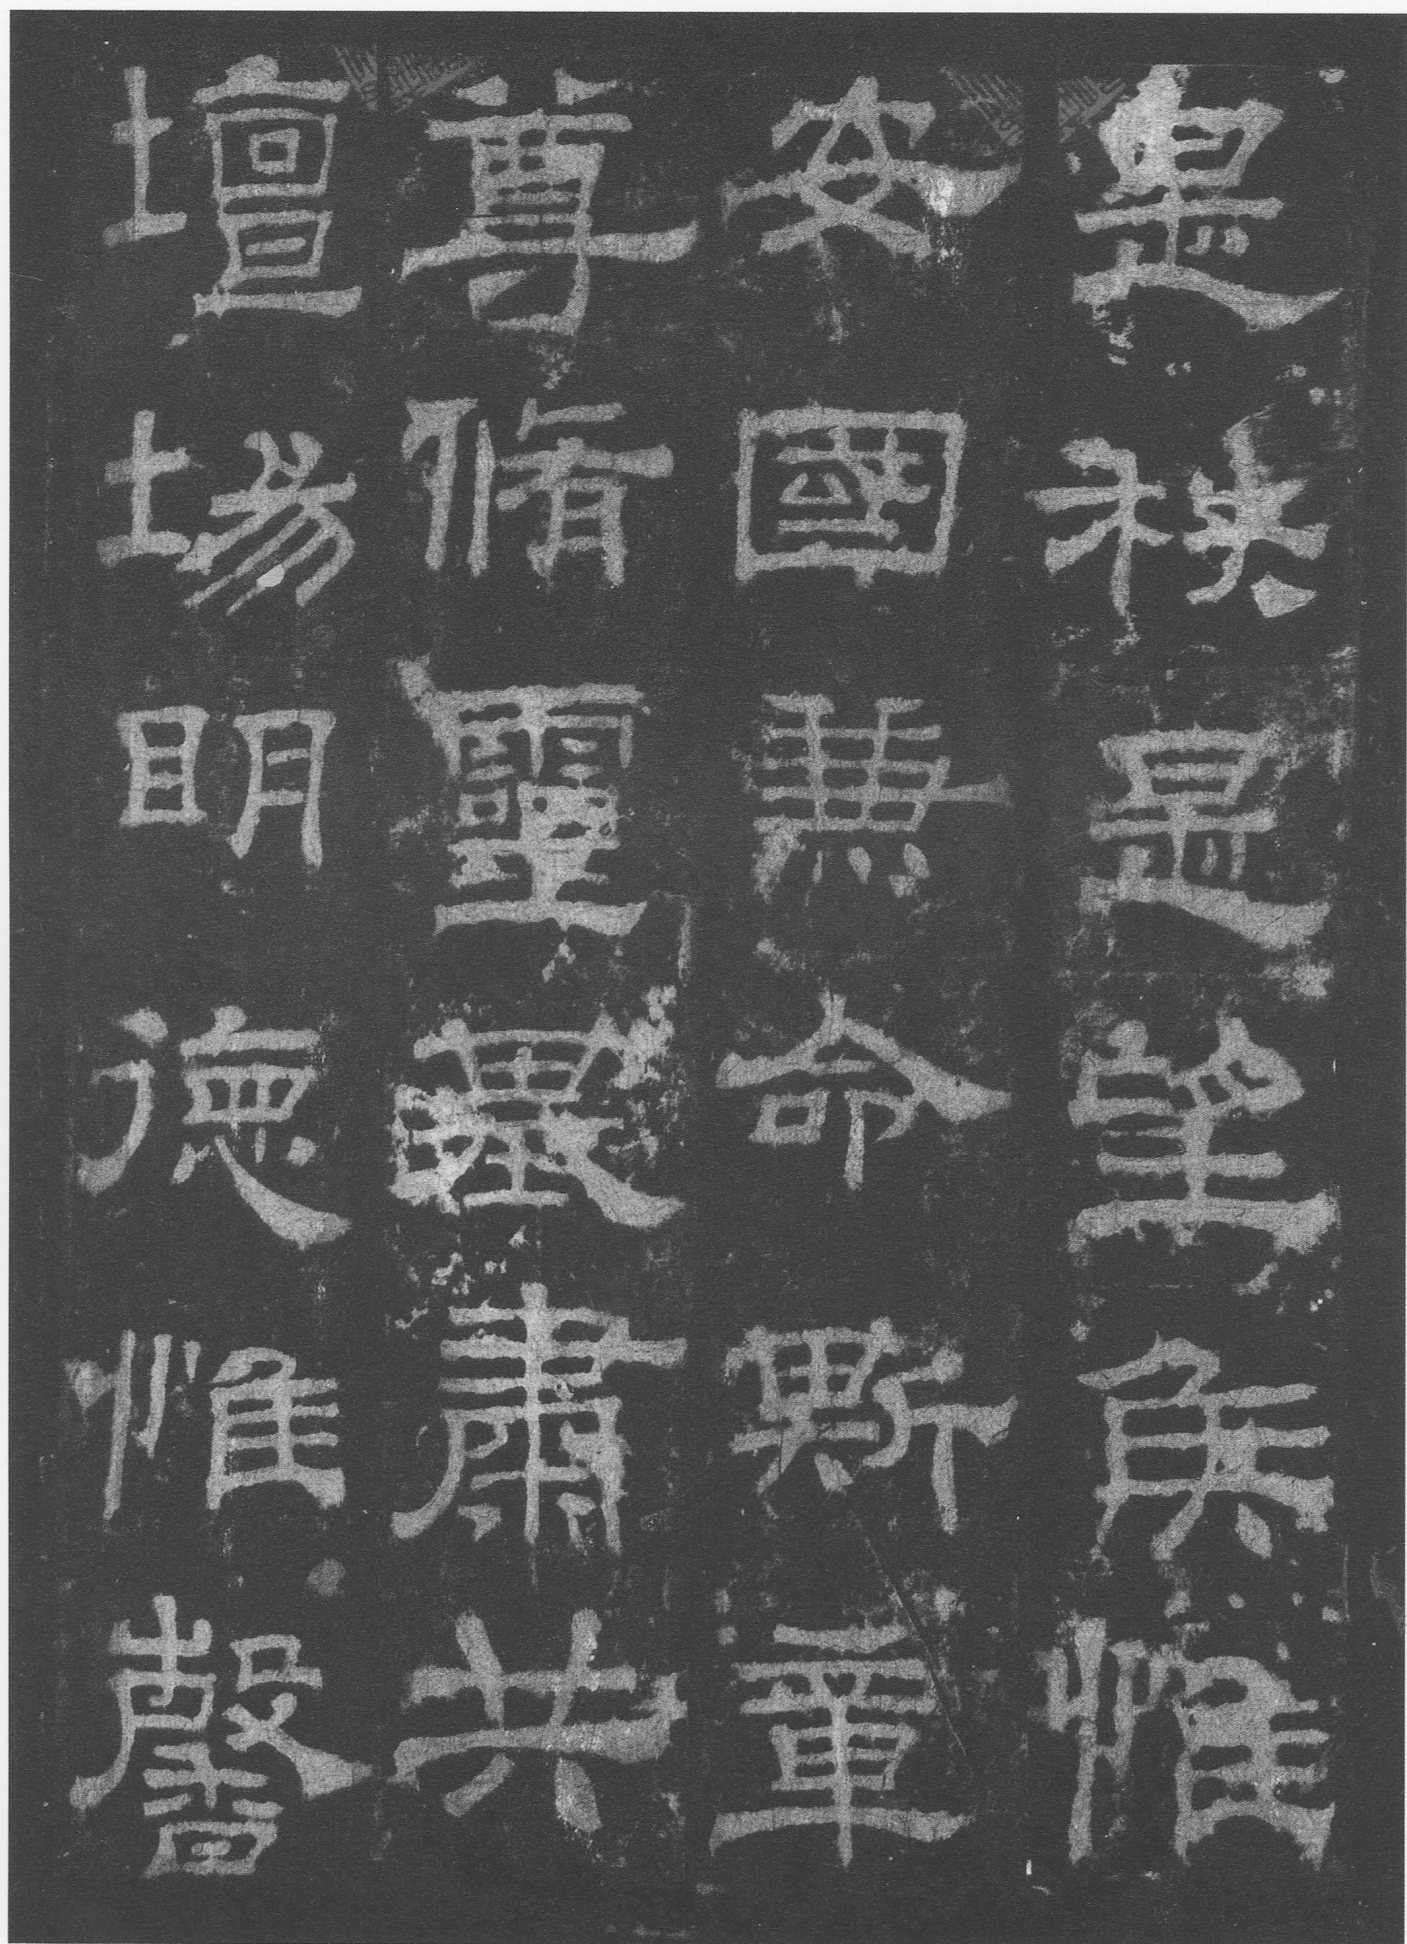 是秩是望侯惟
安國兼命斯章
尊脩靈基肅共
壇場明德惟馨